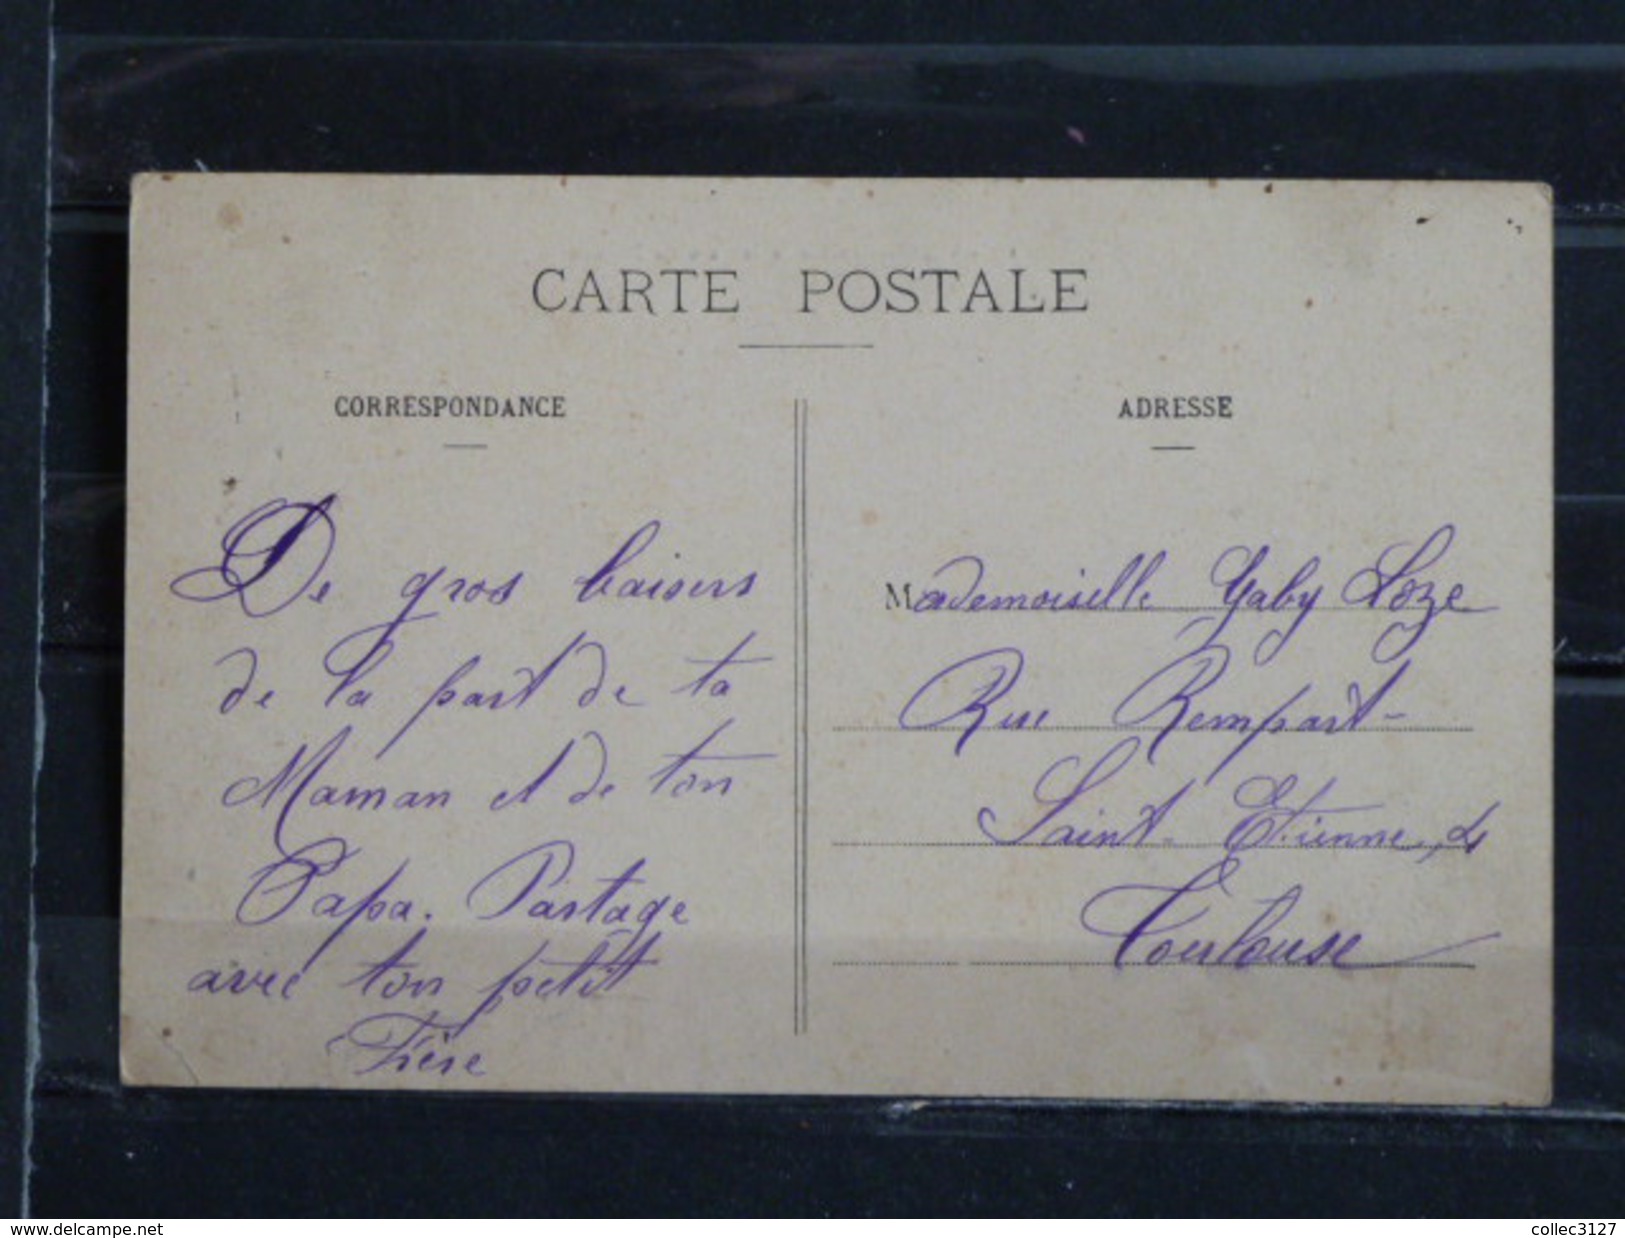 CARTE POSTALE
CORRESPONDANCE
De gros baisers
de la part de ta
Maman et de ton
Papa. Partage
avec ton petit
Frère
ADRESSE
Mademoiselle Gaby Loze
Rue Rempart-
Saint-Etienne,
Toulouse
www.delcampe.net
collec3127